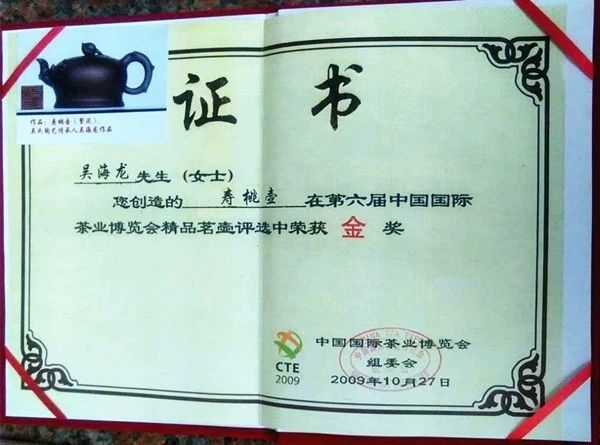 作品：寿桃壶（紫泥）
吴氏陶艺传承人吴海龙作品
证书
吴海龙先生（女士）
您创造的 寿桃壶 在第六届中国国际
茶业博览会精品茗壶评选中荣获 金 奖
CTE
2009
中国国际茶业博览会
组委会
2009年10月27日